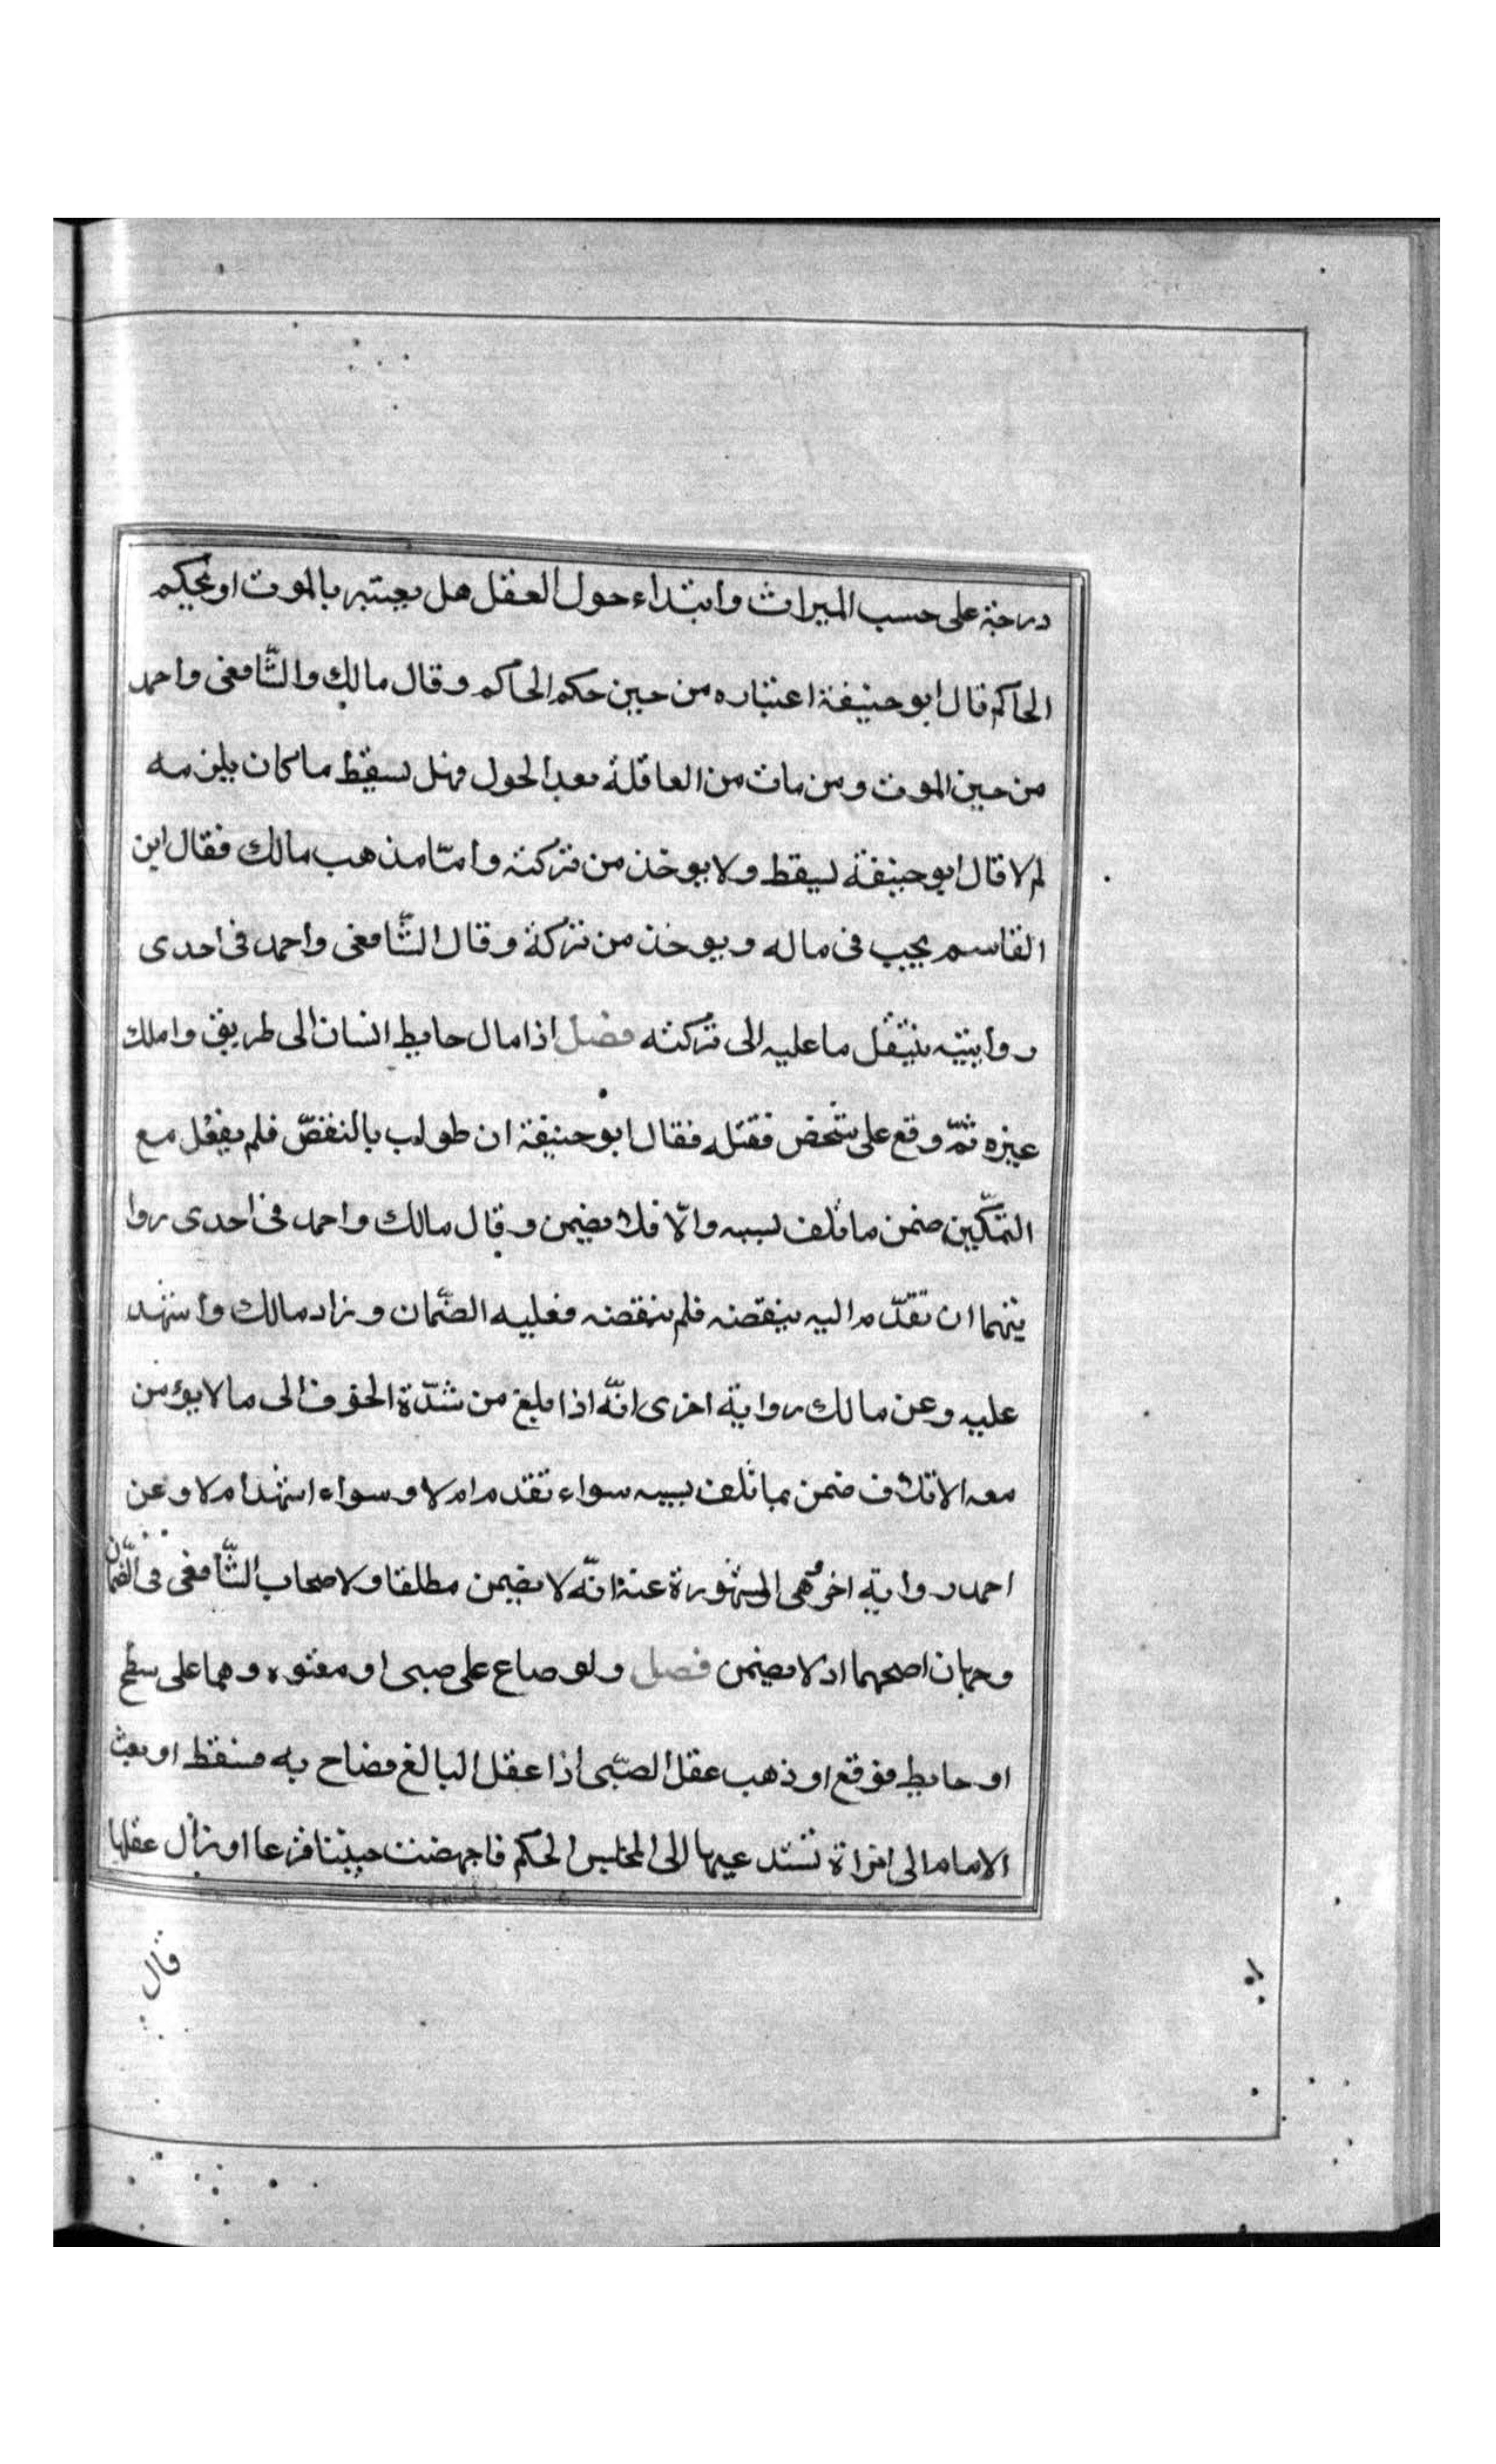 درجة على حسب الميراث وابتداء حول العقل هل يعتبر بالموت او بحكم
الحاكم قال ابو حنيفة اعتباره من حين حكم الحاكم وقال مالك والشّافعى واحمد
من حين الموت ومن مات من العاقلة بعد الحول فهل يسقط ما كان يلزمه
ام لا قال ابو حنيفة يسقط ولا يوخذ من تركته وامّا مذهب مالك فقال ابن
القاسم يجب فى ماله ويوخذ من تركة وقال الشّافعى واحمد فى احدى
روايتيه ينتقل ما عليه الى تركته فصل اذا مال حايط انسان الى طريق واملك
غيره ثمّ وقع على شخص فقتله فقال ابو حنيفة ان طولب بالنقض فلم يفعل مع
التمكّين ضمن ما تلف بسببه والّا فلا يضمن وقال مالك واحمد فى احدى روا
يتهما ان تقدّم اليه بنقضه فلم ينقضه فعليه الضّمان وزاد مالك واشهد
عليه وعن مالك رواية اخرى انّه اذا بلغ من شدّة الخوف الى ما لا يؤمن
معه الاتلاف ضمن بما تلف بسببه سواء تقدم ام لا وسواء اشهد ام لا وعن
احمد رواية اخرى هى المشهورة عنه انّه لا يضمن مطلقا ولاصحاب الشّافعى فى الضّمان
وجهان اصحهما اذ لا يضمن فصل ولو صاع على صبى او معتوه وهما على سطح
او حايط فوقع او ذهب عقل الصّبى اذا عقل البالغ فصاح به فسقط او بعث
الامام الى امراة تستدعيها الى المجلس الحكم فاجهضت جنينا فزعا او زال عقلها
قال